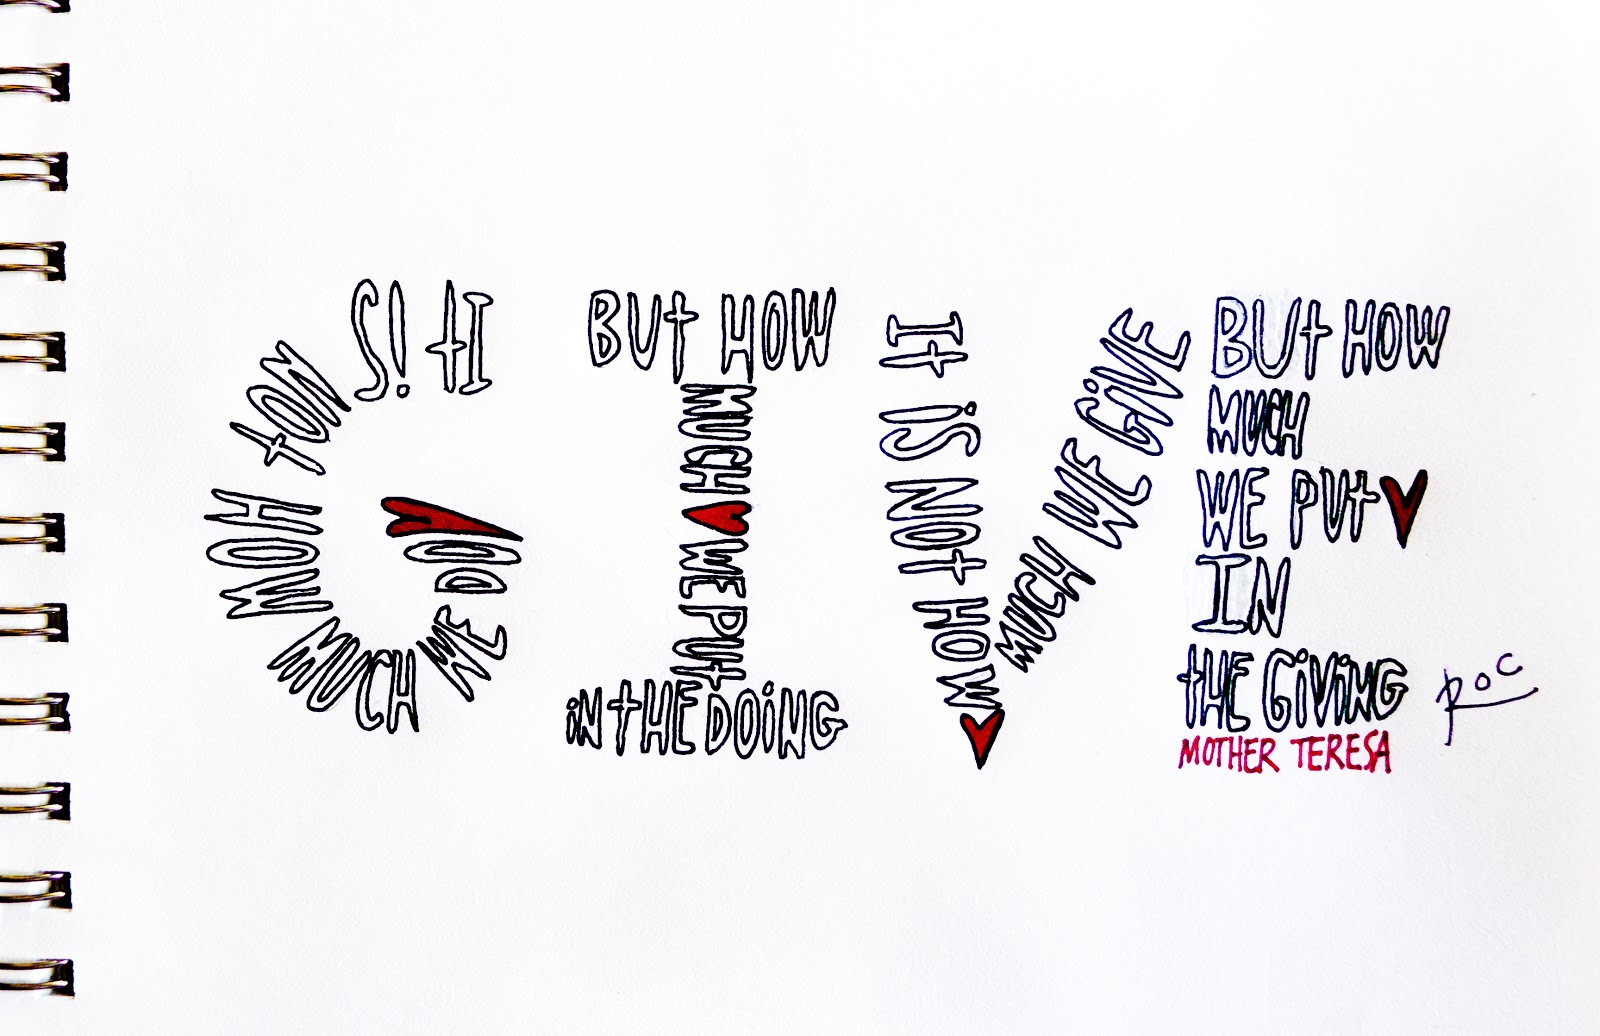 It iS NOt HOW MUCH WE DO
BUt HOW
MUCH WE PUt
iN tHE DOiNG
It iS NOt HOW
MUCH WE GiVE
BUt HOW
MUCH
WE PUt
IN
tHE GiViNG
MOTHER TERESA
ROC